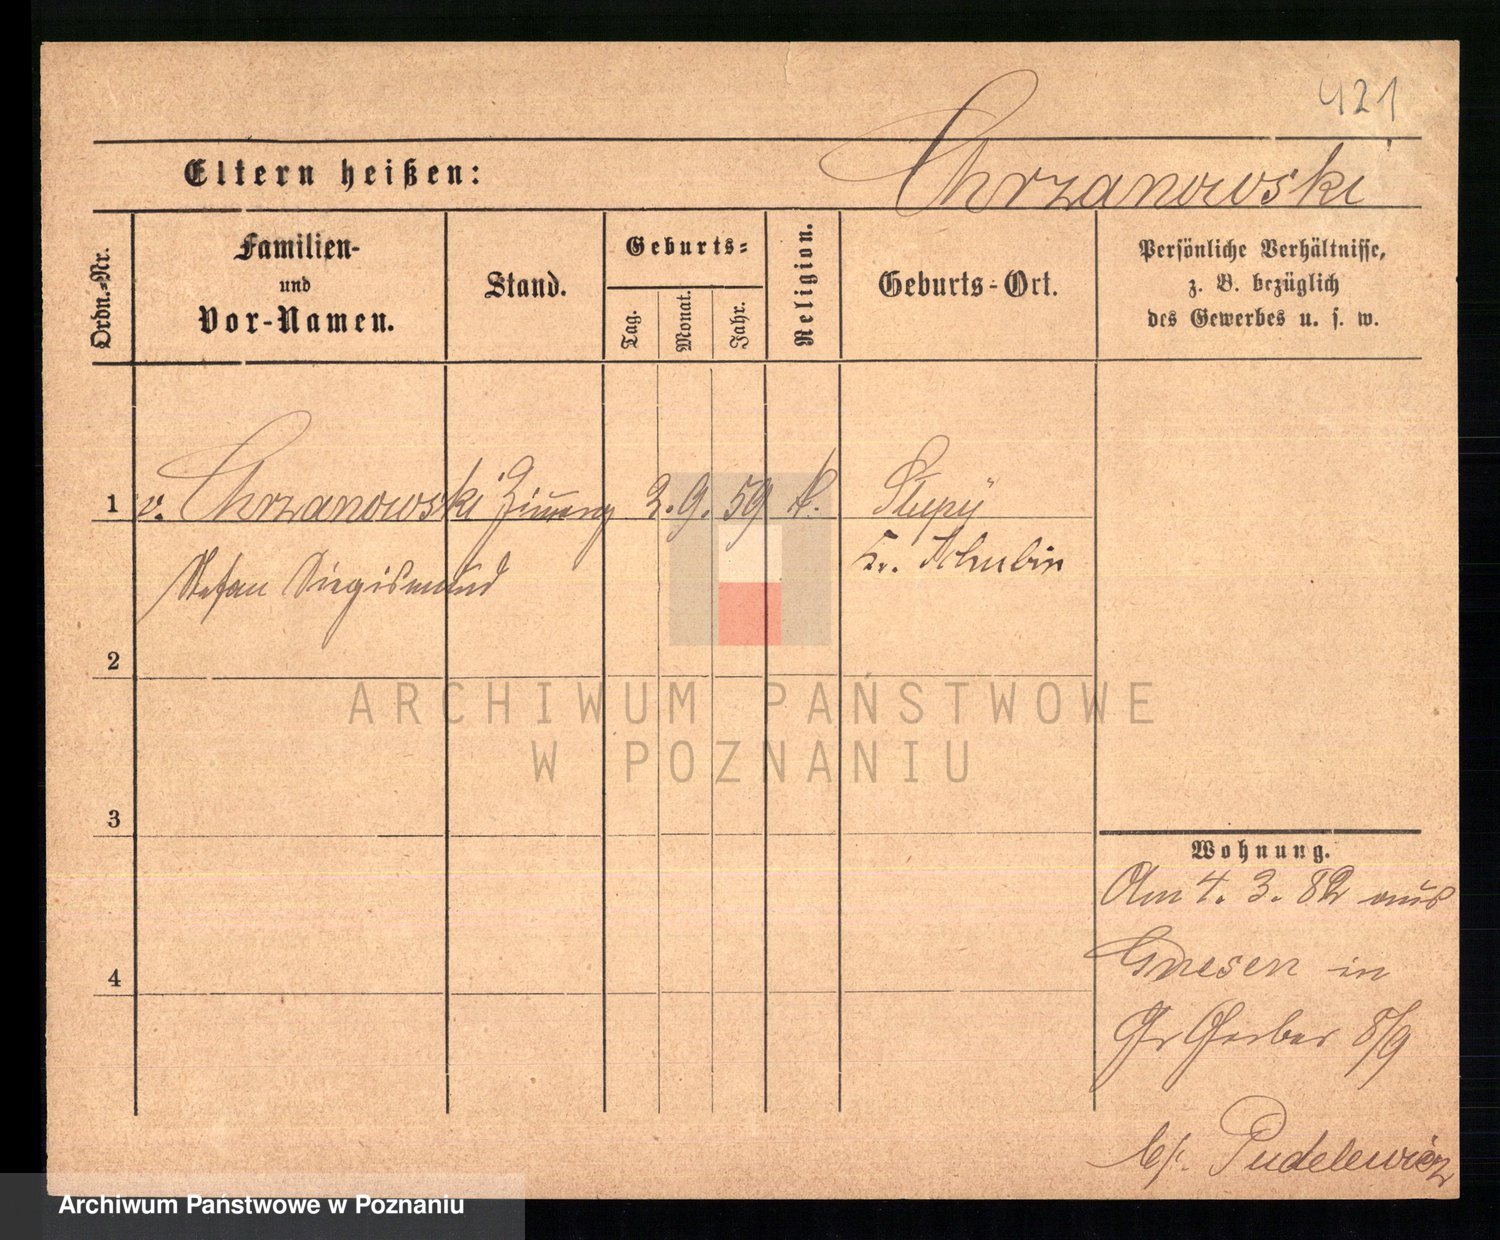 421
Eltern heißen:
Chrzanowski
Ordn.-Nr.
Familien-
und
Vor-Namen.
Stand.
Geburts-
Tag.
Monat.
Jahr.
Religion.
Geburts-Ort.
Persönliche Verhältnisse,
z. B. bezüglich
des Gewerbes u. s. w.
1
v. Chrzanowski
3. 9. 59
k.
Słupy
Stefan Siegismund
Schubin
2
ARCHIWUM PAŃSTWOWE
W POZNANIU
3
Wohnung.
Am 4. 3. 82 aus
Gnesen in
4
Gr Gerber 8/9
Pudelewicz
Archiwum Państwowe w Poznaniu